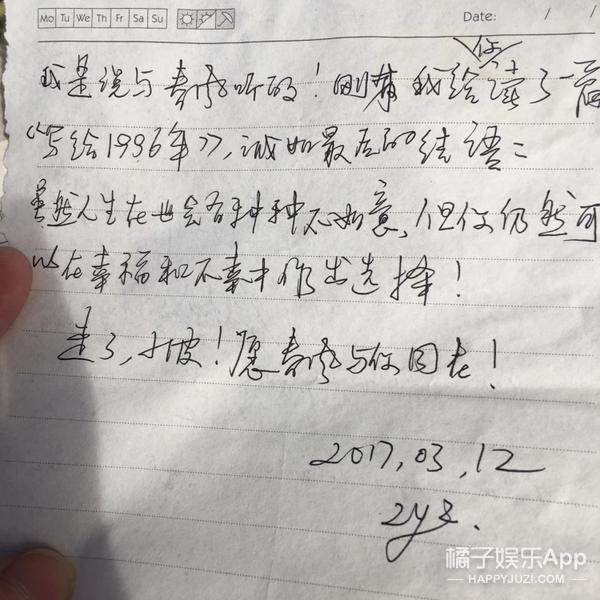 Mo Tu We Th Fr Sa Su Date: / /
你
我是说与听的！我给读了一篇
《写给1996年》，诚如最后的结语：
虽然人生在世会有种种不如意，但你仍然可
以在幸福和不幸中作出选择！
走了，小波！愿与你同在！
2017.03.12
zyz.
橘子娱乐App
HAPPYJUZI.COM